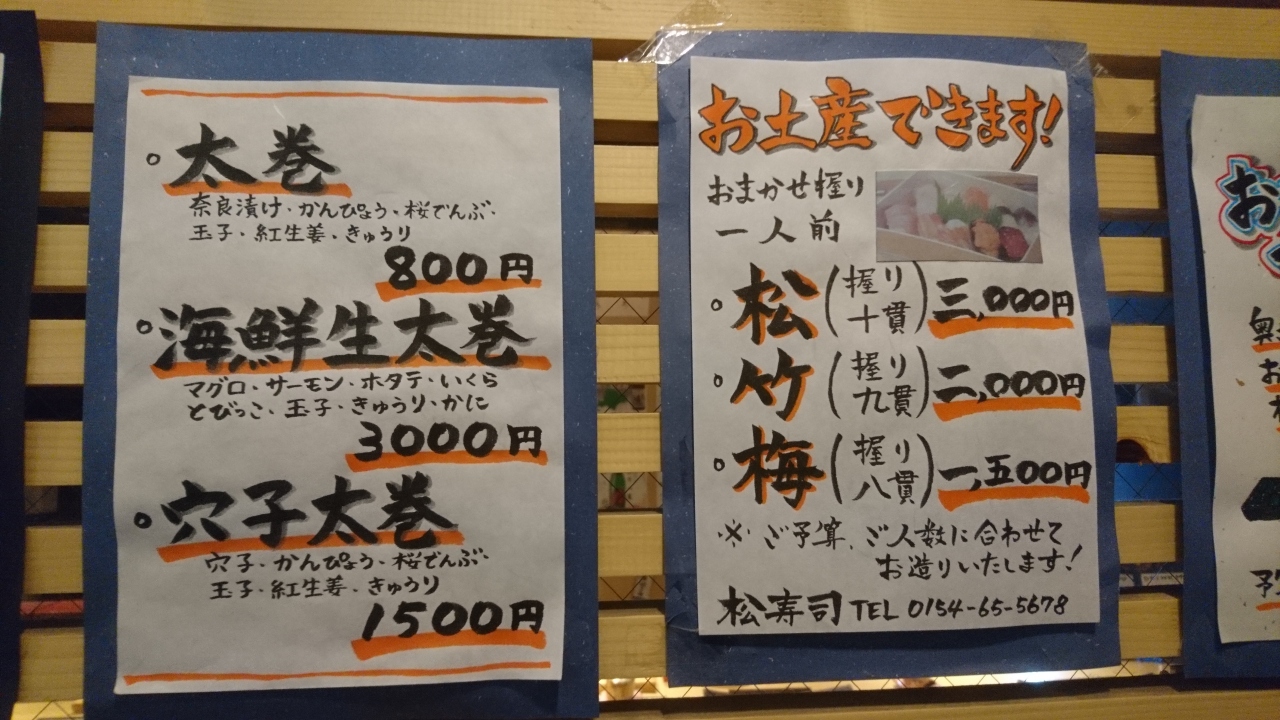 ○太巻
奈良漬け・かんぴょう・桜でんぶ・
玉子・紅生姜・きゅうり
800円
○海鮮生太巻
マグロ・サーモン・ホタテ・いくら
とびっこ・玉子・きゅうり・かに
3000円
○穴子太巻
穴子・かんぴょう・桜でんぶ・
玉子・紅生姜・きゅうり
1500円
お土産できます!
おまかせ握り
一人前
○松(握り十貫)三,000円
○竹(握り九貫)二,000円
○梅(握り八貫)一,五00円
※ご予算、ご人数に合わせて
お造りいたします!
松寿司 TEL 0154-65-5678
お
奥
お
予